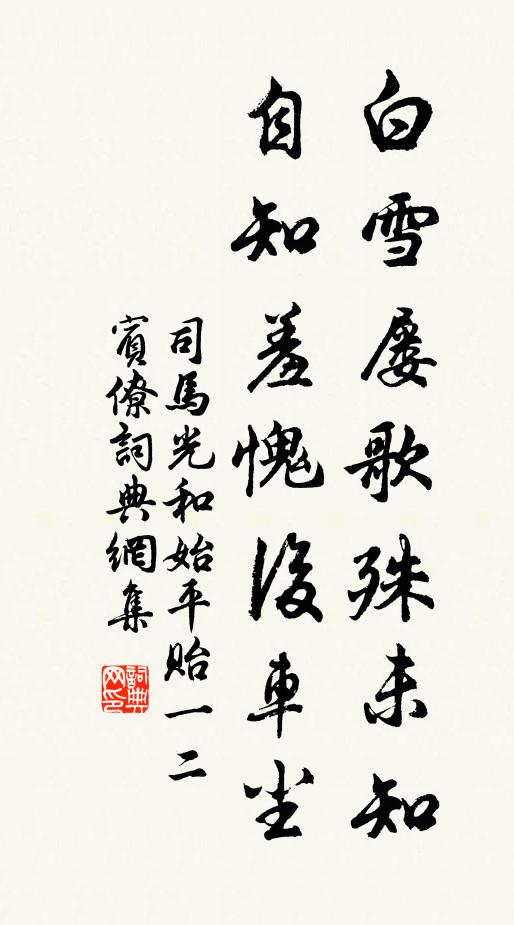 白雪屡歌殊未知
自知羞愧後車坐
司馬光和始平貽一二
賓僚詞典網集
詞典
网印